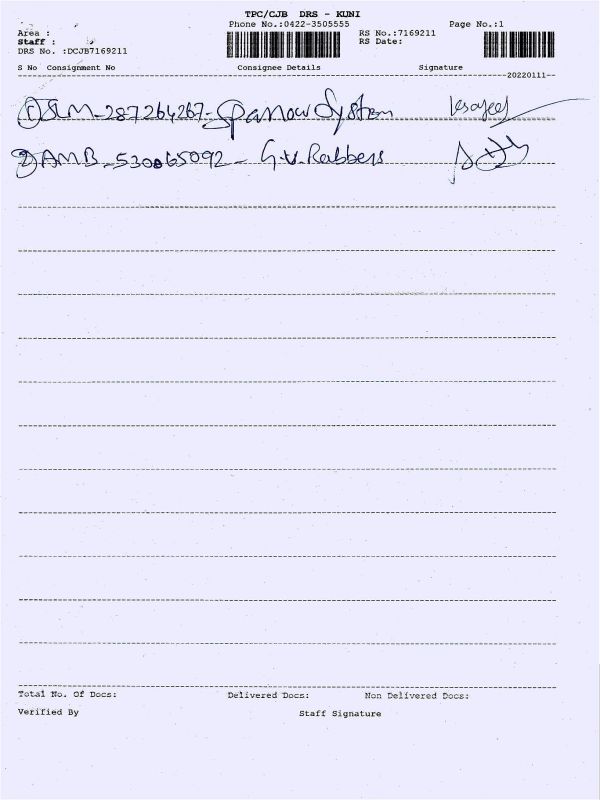 TPC/CJB DRS - KUNI
Phone No.:0422-3505555
Page No.:1
Area :
RS No.:7169211
Staff :
RS Date:
DRS No. :DCJB7169211
S No Consignment No Consignee Details Signature
20220111
1) SLM-287264267- Sparrow System
2) AMB-530065092 - G.V. Rabbers
Total No. Of Docs: Delivered Docs: Non Delivered Docs:
Verified By Staff Signature